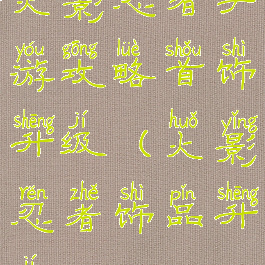 火影忍者手
yóu gōng lüè shǒu shì
游攻略首饰
shēng jí huǒ yǐng
升级（火影
rěn zhě shì pǐn shēng
忍者饰品升
jí